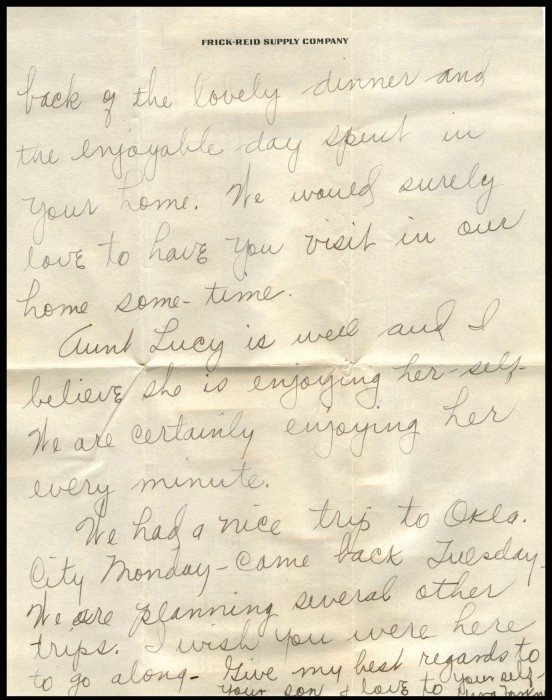 FRICK-REID SUPPLY COMPANY
back of the lovely dinner and
the enjoyable day spent in
your home. We would surely
love to have you visit in our
home some-time.
Aunt Lucy is well and I
believe she is enjoying her-self-
We are certainly enjoying her
every minute.
We had a nice trip to Okla.
City Monday-came back Tuesday-
We are planning several other
trips. I wish you were here
to go along- Give my best regards to
your son & love to your self-